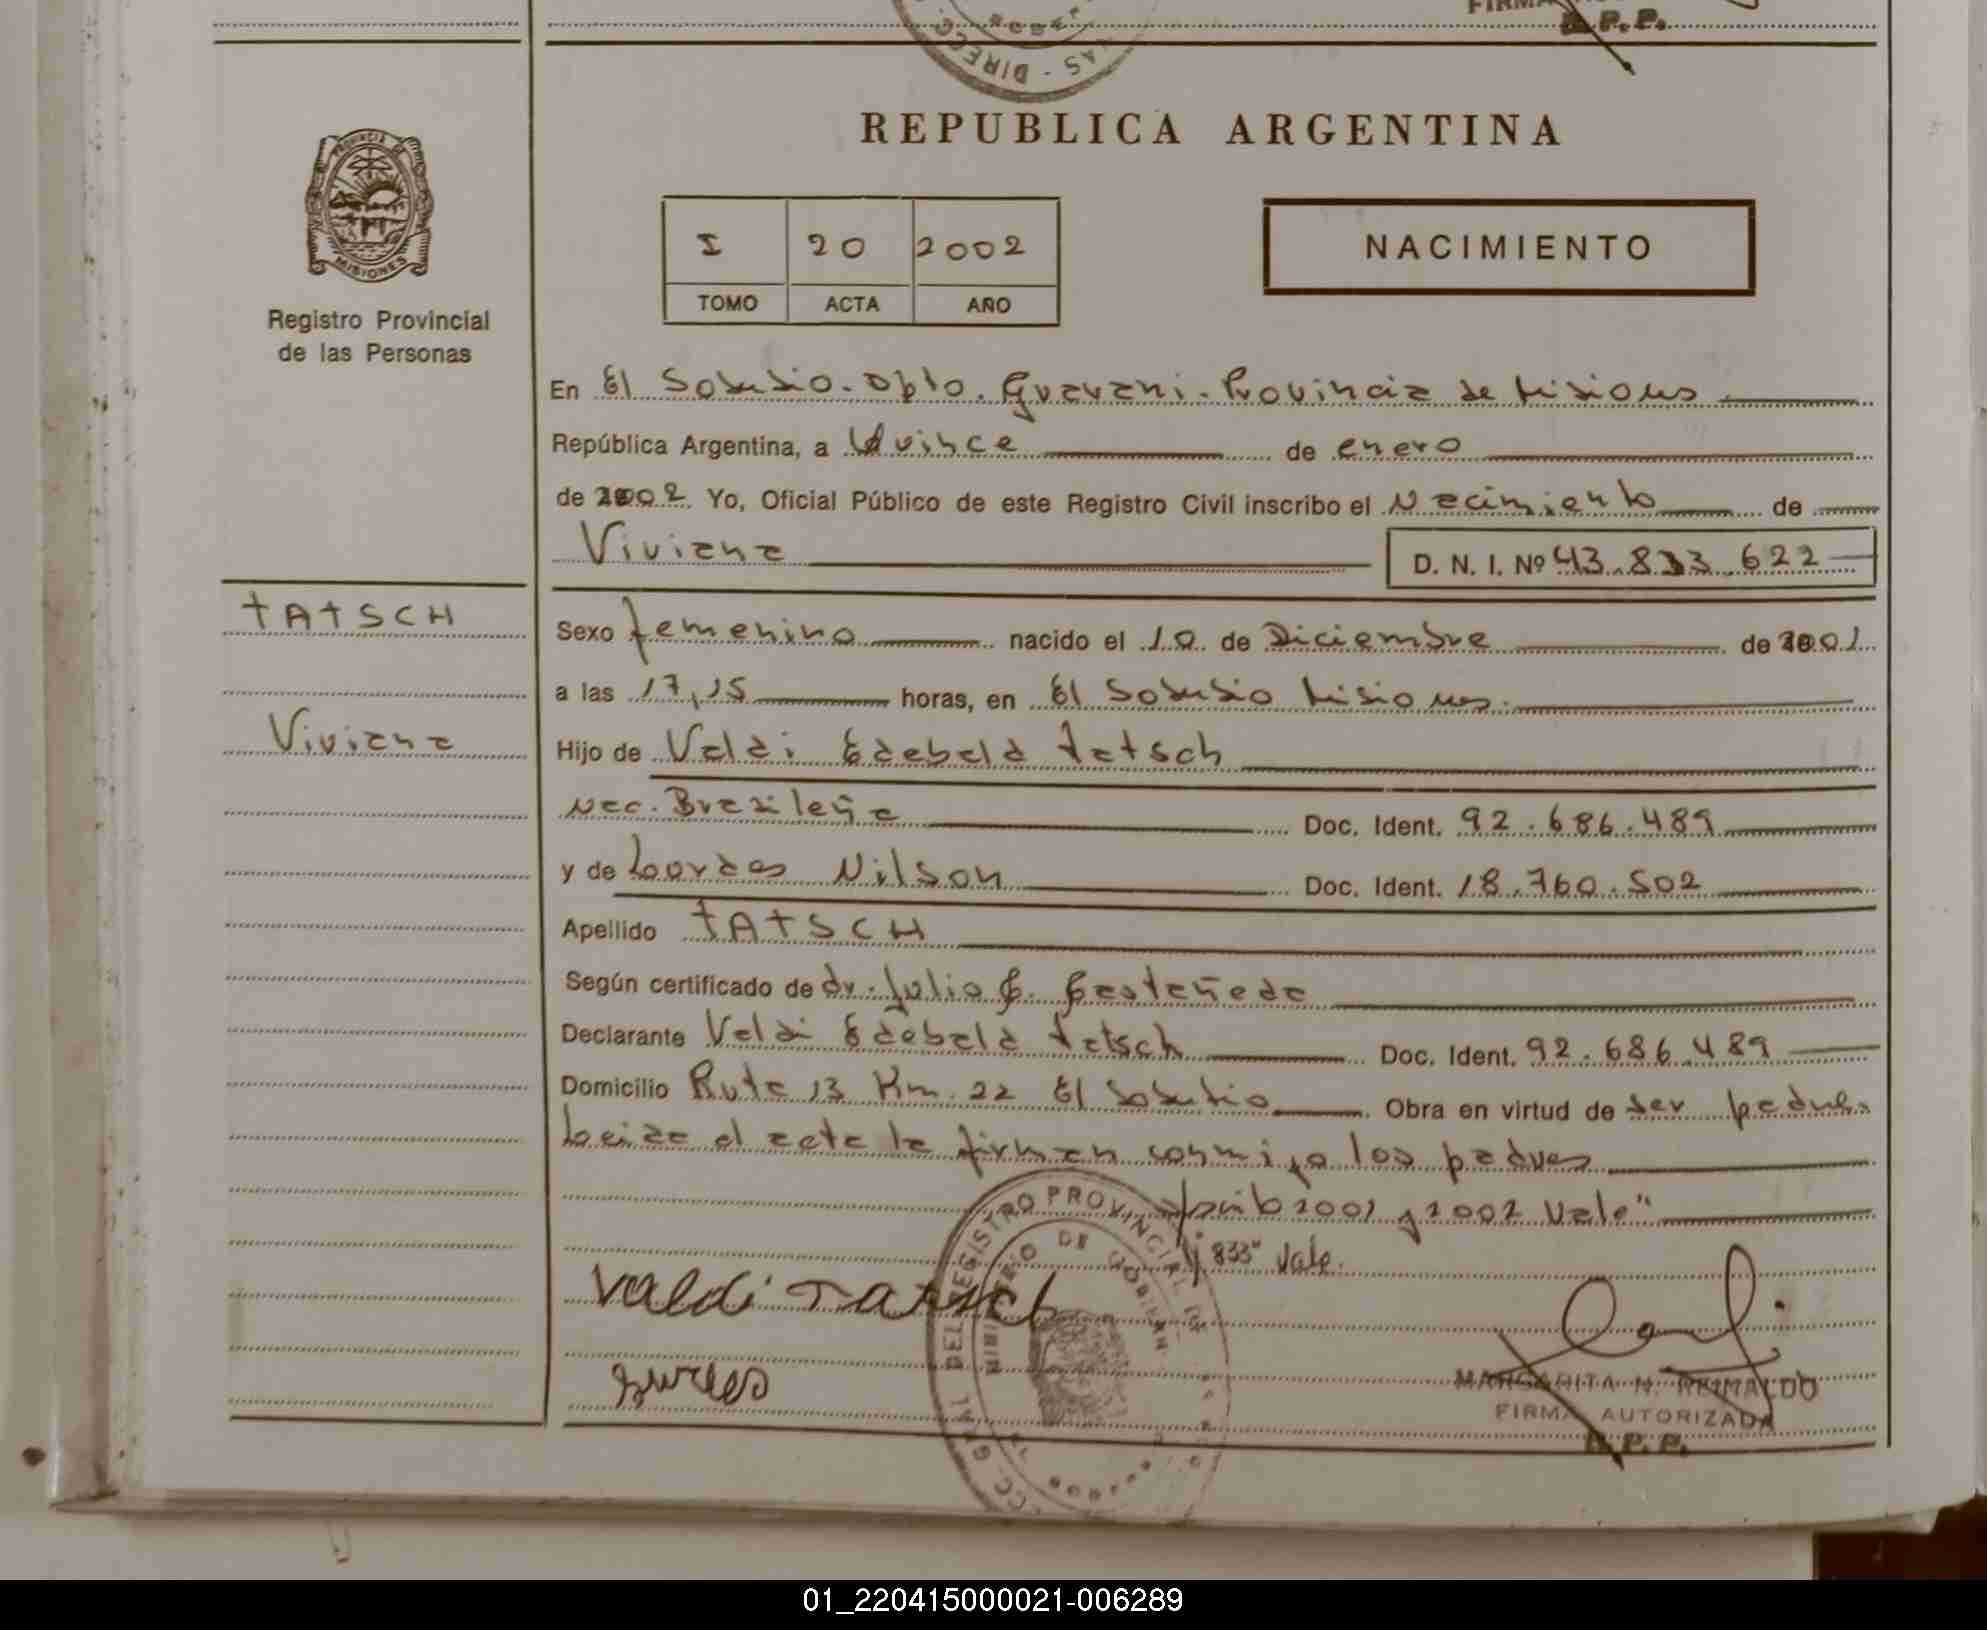 FIRMA
R. P. P.
DIRECC.
REPUBLICA ARGENTINA
PROVINCIA DE
MISIONES
Registro Provincial
de las Personas
I 20 2002
TOMO ACTA AÑO
NACIMIENTO
En El Soberbio. Dpto. Guarani. Provincia de Misiones
República Argentina, a Quince de enero
de 2002 Yo, Oficial Público de este Registro Civil inscribo el Nacimiento de
Viviana
D. N. I. Nº 43.833.622
TATSCH
Viviana
Sexo femenino nacido el 10 de Diciembre de 2001
a las 17,15 horas, en El Soberbio Misiones.
Hijo de Valdi Edebald Tatsch
Nac. Brasileña Doc. Ident. 92.686.489
y de Lordes Nilson Doc. Ident. 18.760.502
Apellido TATSCH
Según certificado de dr. Julio C. Castañeda
Declarante Valdi Edebald Tatsch Doc. Ident. 92.686.489
Domicilio Ruta 13 Km. 22 El Soberbio Obra en virtud de ser padre.
Leida el acta la firman conmigo los padres
2001 y 2002 Vale"
833" Vale.
Valdi Tatsch
DIRECC. GRAL. DEL REGISTRO PROVINCIAL DE
MINISTERIO DE GOBIERN
MARGARITA N. REIMALDO
FIRMA AUTORIZADA
R. P. P.
01_220415000021-006289